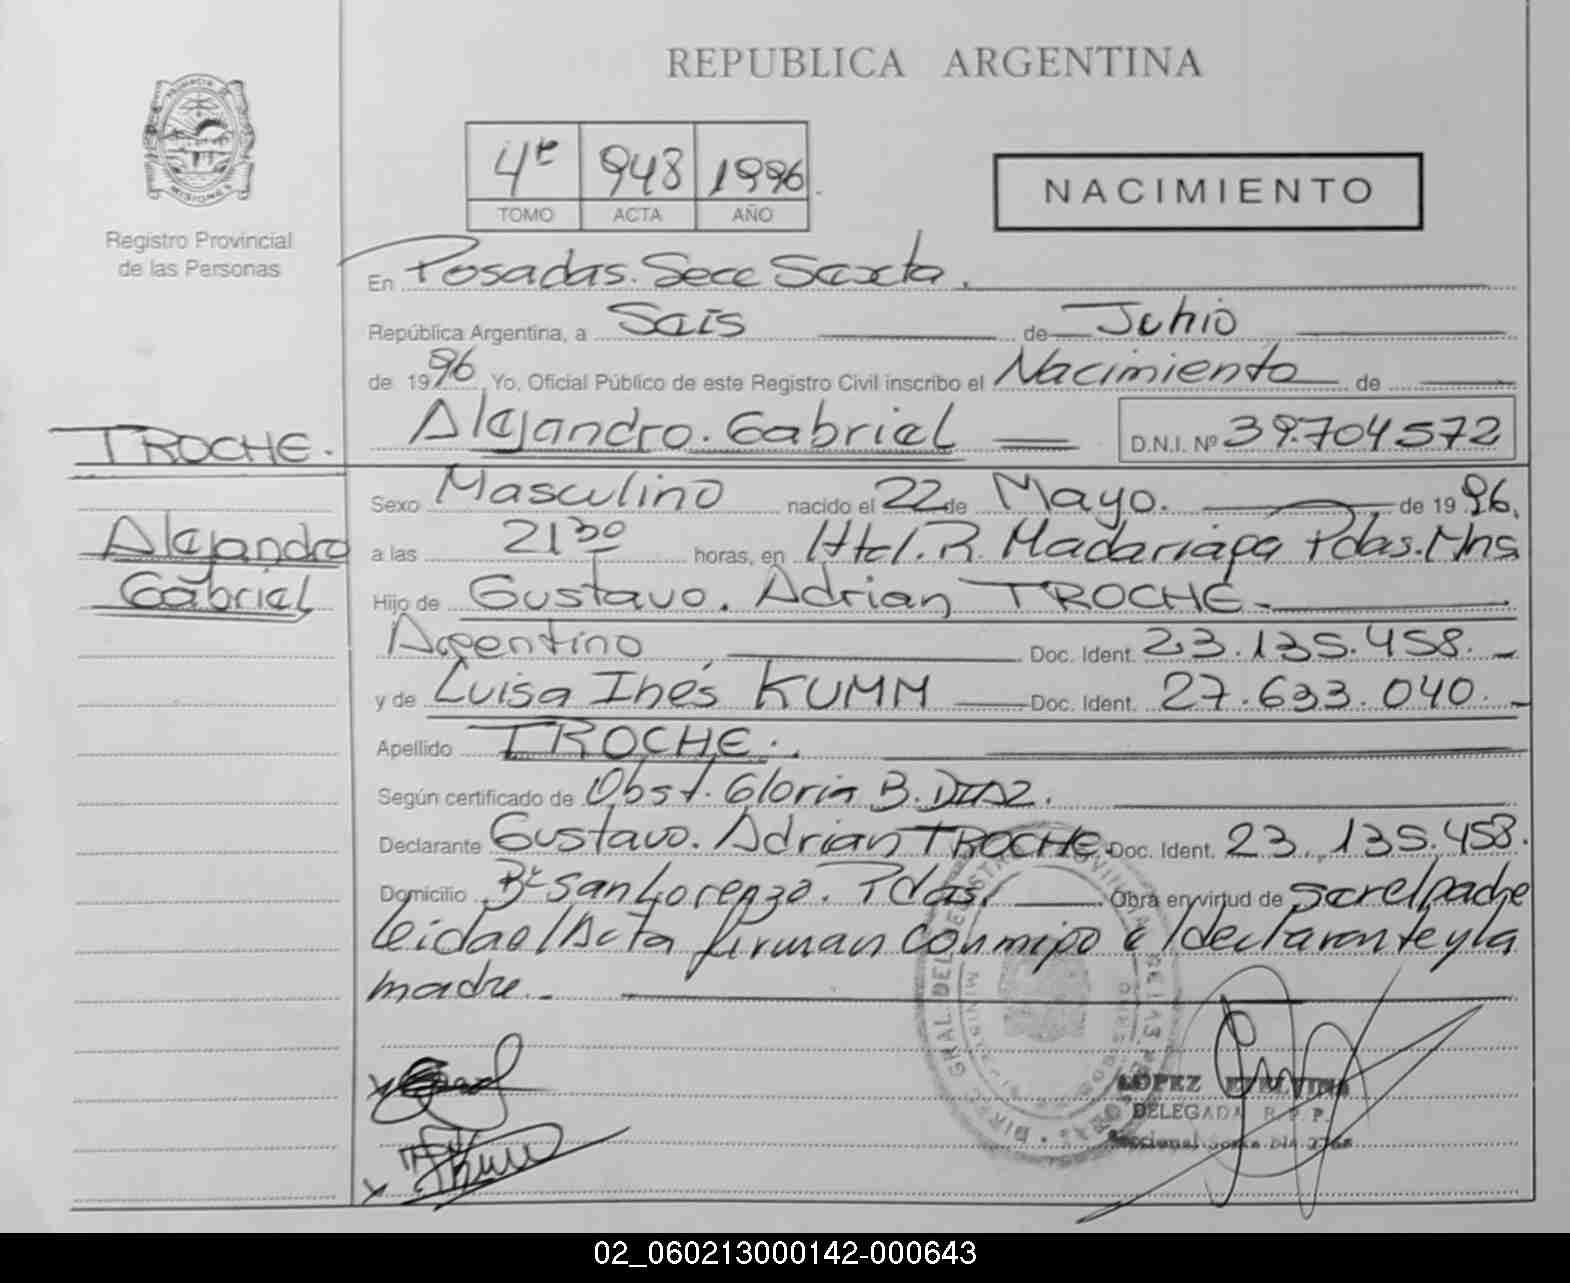 REPUBLICA ARGENTINA
4º 948 1996
TOMO ACTA AÑO
NACIMIENTO
MISIONES
Registro Provincial
de las Personas
En Posadas. Secc Sexta.
República Argentina, a Seis de Junio
de 1996, Yo, Oficial Público de este Registro Civil inscribo el Nacimiento de
Alejandro. Gabriel D.N.I. Nº 39.704572
TROCHE.
Alejandro
Gabriel
Sexo Masculino nacido el 22 de Mayo. de 1996.
a las 21 30 horas, en Htel. R. Madariaga Pdas. Mns
Hijo de Gustavo. Adrian TROCHE.
Argentino Doc. Ident. 23.135.458.
y de Luisa Inés KUMM Doc. Ident. 27.633.040.
Apellido TROCHE.
Según certificado de Obst. Gloria B. DIAZ.
Declarante Gustavo. Adrian TROCHE. Doc. Ident. 23.135.458.
Domicilio Bº San Lorenzo. Pdas. Obra en virtud de ser el padre
leida e/Acta firman conmigo e/declarante y la
madre.
LOPEZ
DELEGADA R. P. P.
02_060213000142-000643